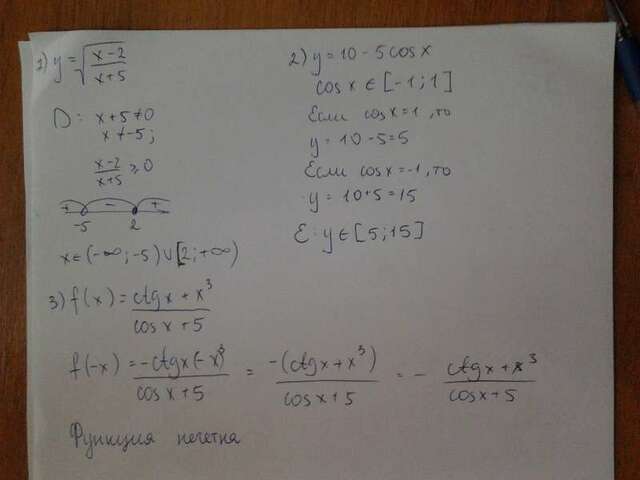 1) y = √((x-2)/(x+5))
D: x+5≠0
x≠-5;
(x-2)/(x+5) ≥ 0
+ - +
-5 2
x∈(-∞;-5)∪[2;+∞)
2) y = 10 - 5cosx
cosx ∈ [-1;1]
Если cosx=1, то
y = 10-5=5
Если cosx=-1, то
y = 10+5=15
E: y∈[5;15]
3) f(x) = (ctgx + x³)/(cosx + 5)
f(-x) = (-ctgx(-x)³)/(cosx+5) = (-(ctgx+x³))/(cosx+5) = - (ctgx+x³)/(cosx+5)
Функция нечетна